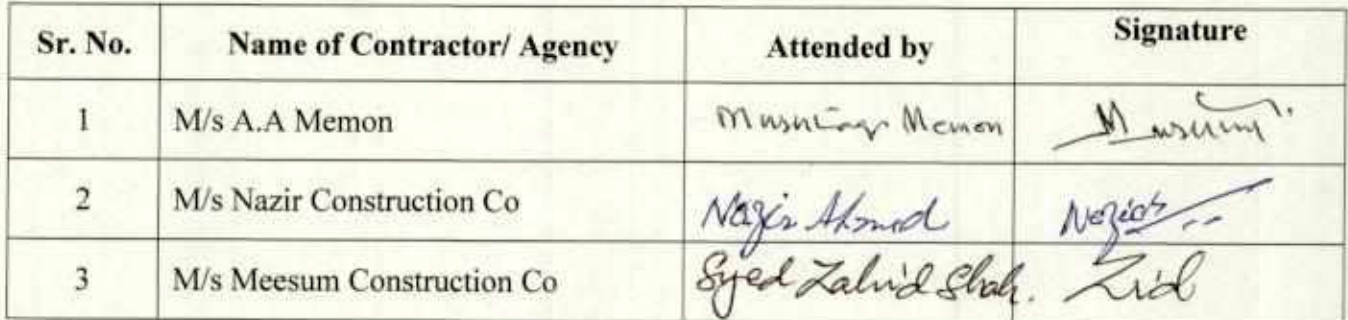 Sr. No. Name of Contractor/ Agency Attended by Signature
1 M/s A.A Memon Memon
2 M/s Nazir Construction Co Nazir Ahmed
3 M/s Meesum Construction Co Syed Zahid Shah. Zid